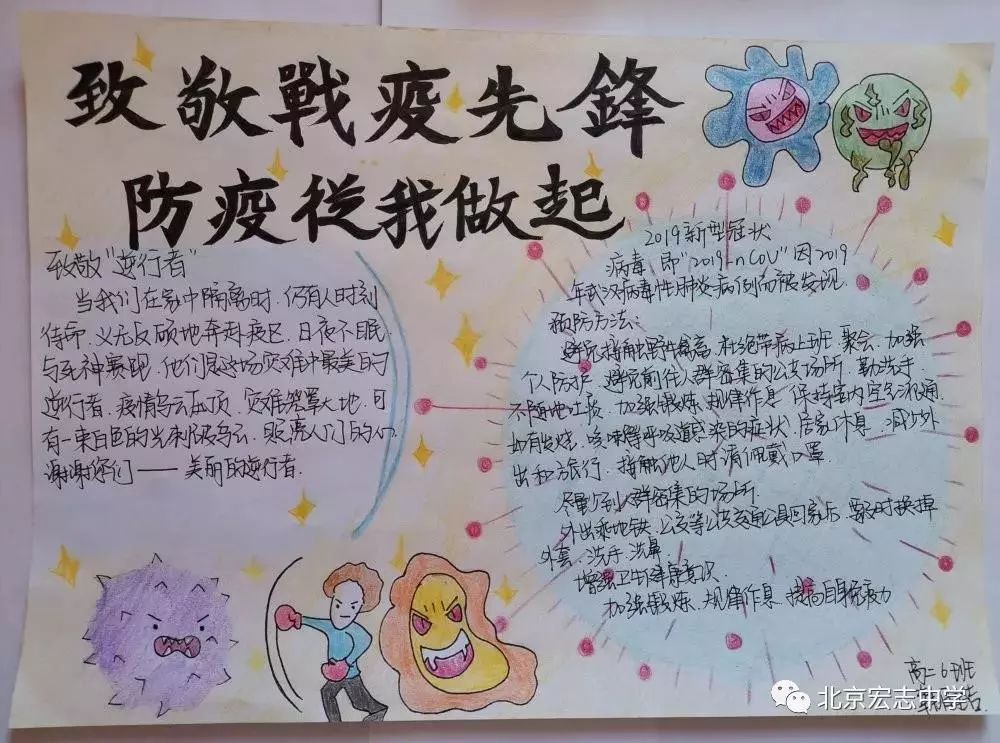 致敬戰疫先鋒
防疫從我做起
致敬"逆行者"
当我们在家中隔离时,仍有人时刻
待命,义无反顾地奔赴疫区,日夜不眠
与死神赛跑,他们是这场灾难中最美的
逆行者,疫情乌云压顶,灾难笼罩大地,可
有一束白色的光束
谢谢你们——美丽的逆行者.
2019新型冠状
病毒,即"2019-nCoV"因2019
年武汉病毒性肺炎病例而被发现.
预防方法:
避免接触野生禽畜,杜绝带病上班、聚会,加强
个人防护,避免前往人群密集的公共场所,勤洗手
不随地吐痰,加强锻炼,规律作息,保持室内空气流通
如有发烧,咳嗽等呼吸道感染的症状,居家休息,减少外
出和旅行,接触他人时请佩戴口罩
尽量少到人群密集的场所.
外出乘地铁、公交等公共交通工具回家后,要及时换掉
外套,洗手,洗鼻.
增强卫生健康意识
加强锻炼,规律作息,提高自身免疫力
高二6班
北京宏志中学